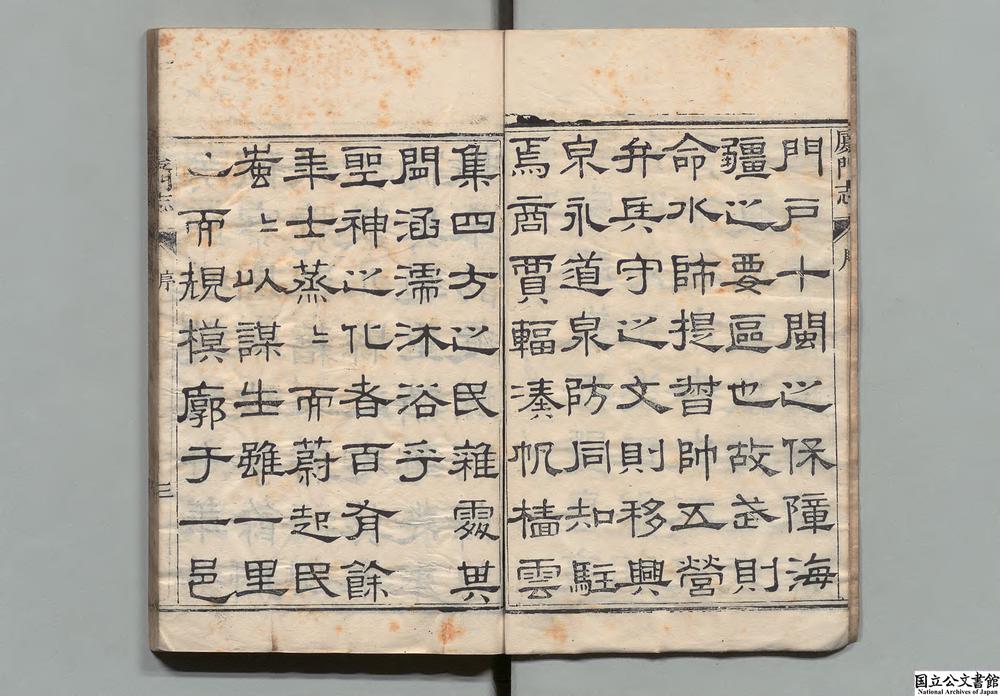 廈門志 序
門戶十閩之保障海
疆之要區也故武則
命水師提督帥五營
弁兵守之文則移興
泉永道泉防同知駐
焉商賈輻湊帆檣雲
集四方之民雜處其
間涵濡沐浴乎
聖神之化者百有餘
年士蒸〻而蔚起民
蚩〻以謀生雖一里
而規模廓于一邑
廈門志 序 三
国立公文書館
National Archives of Japan